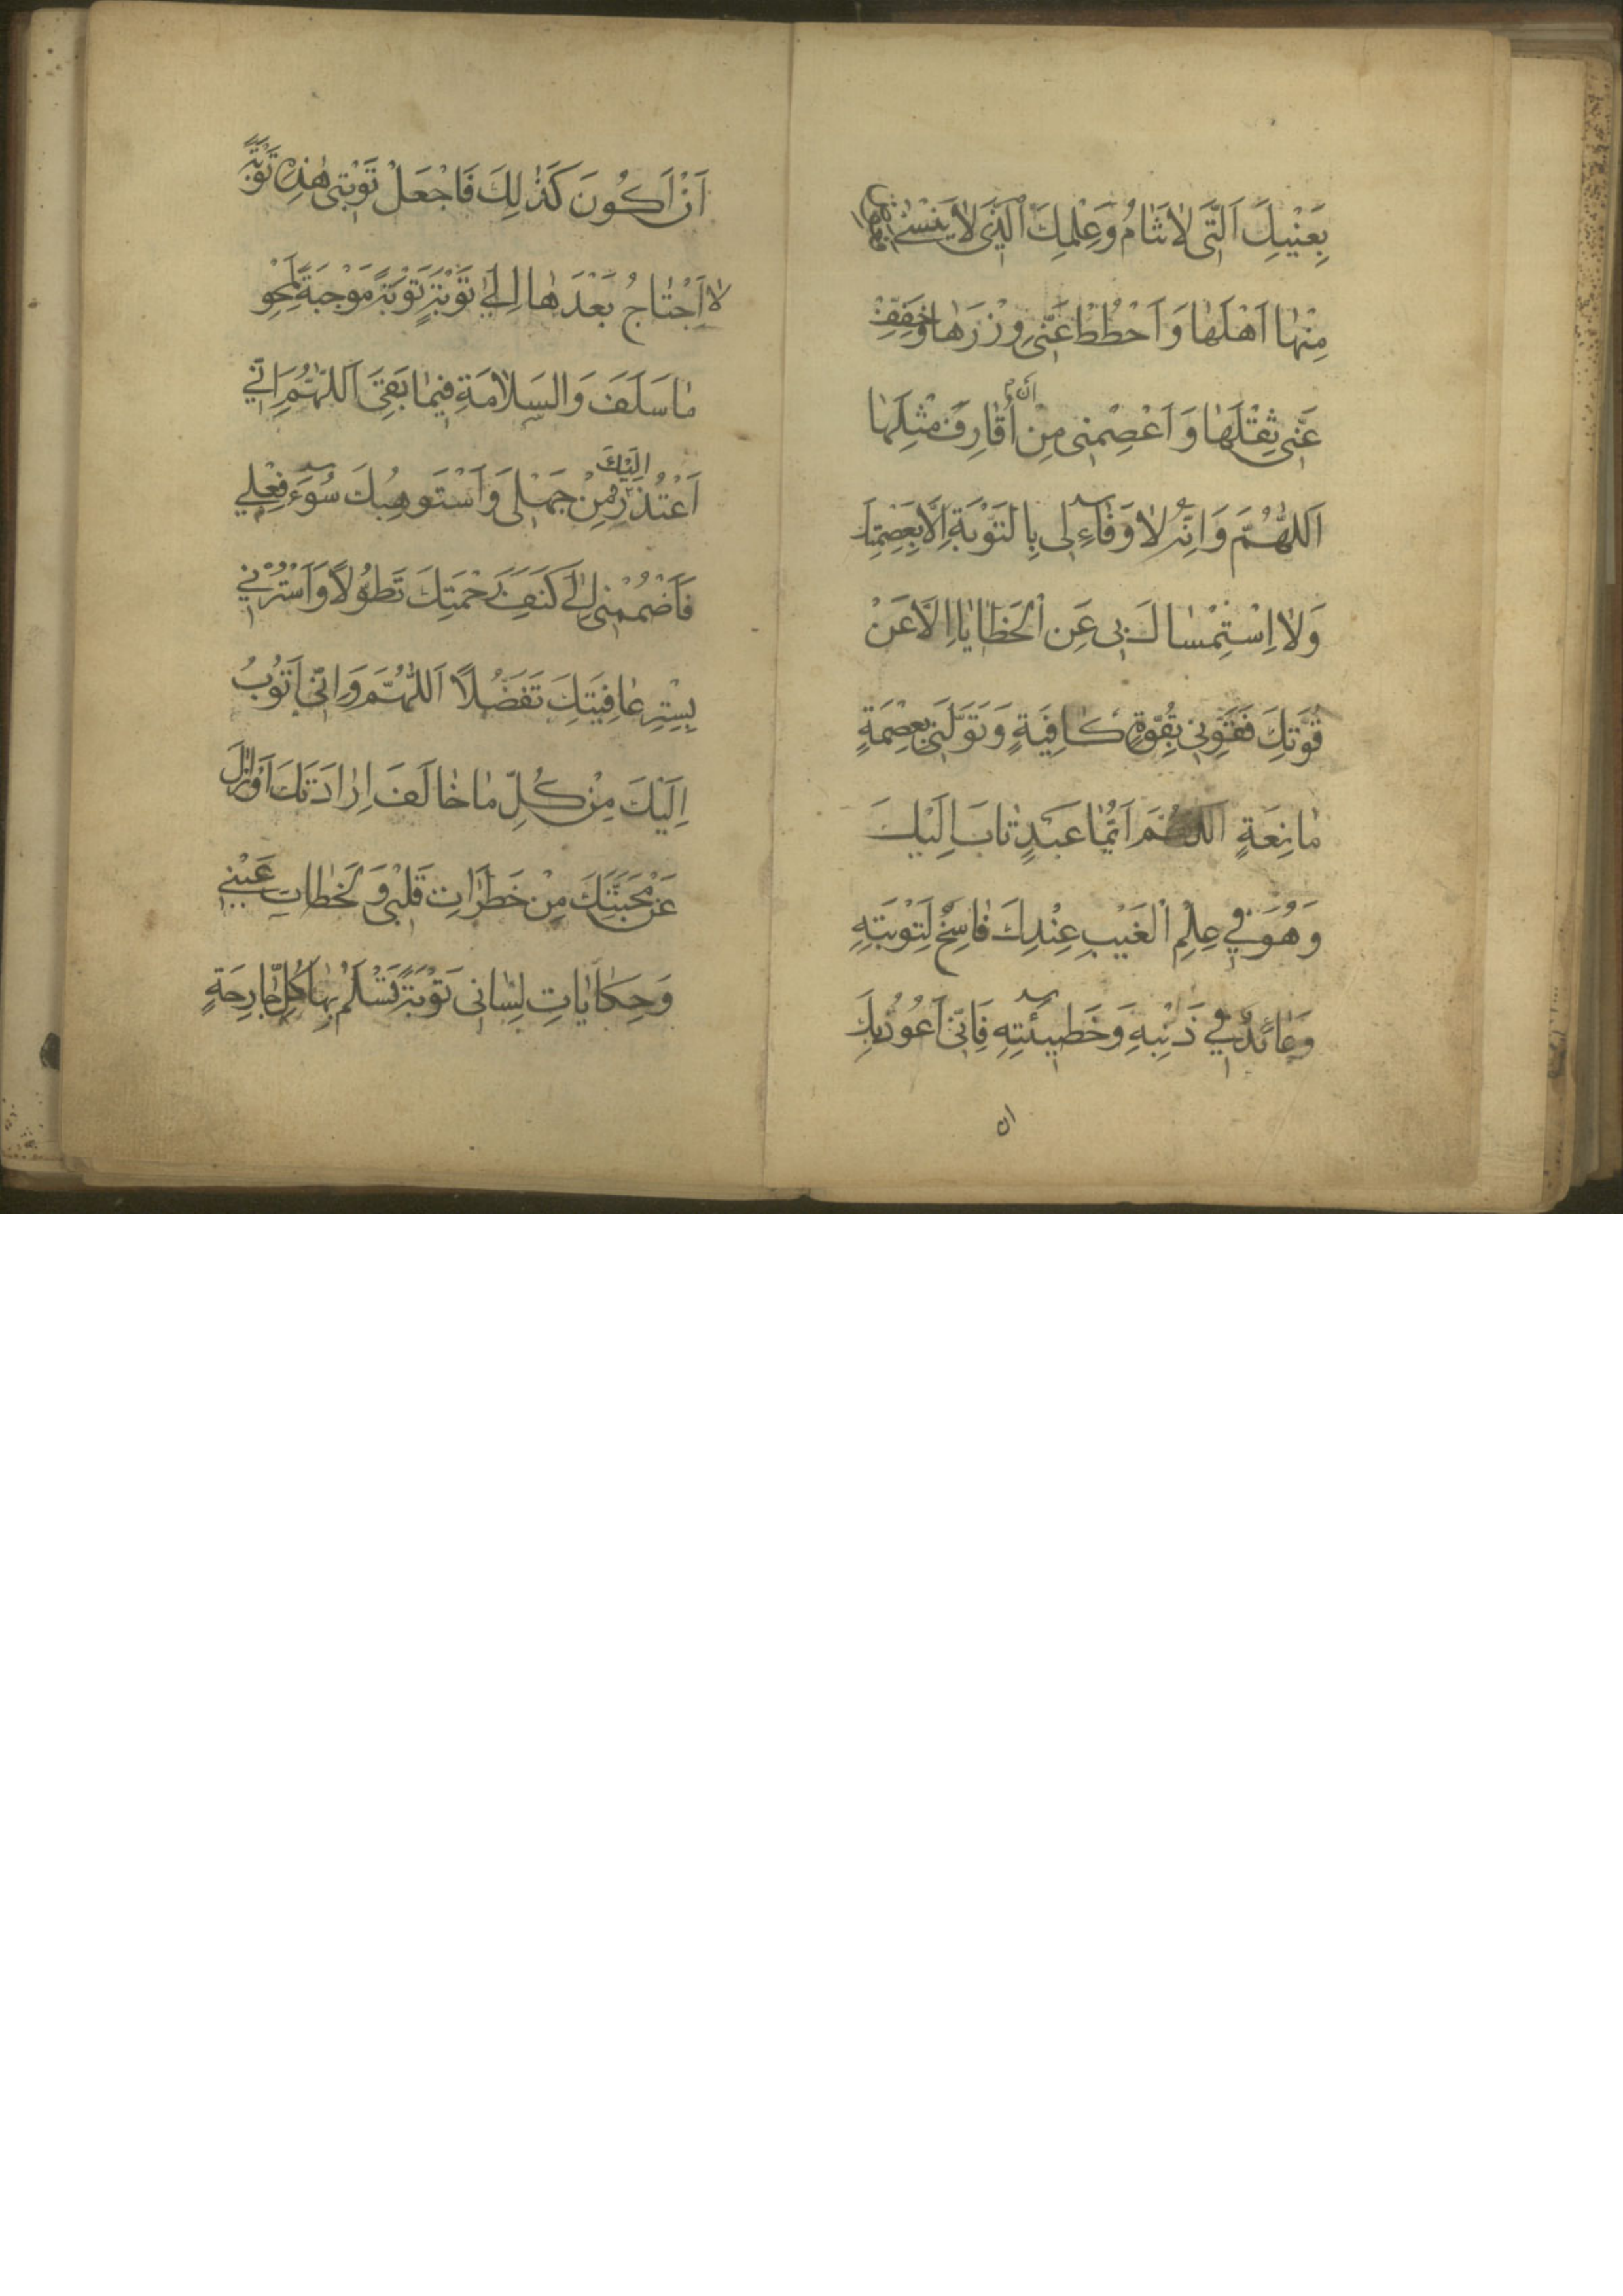 بِعَيْنِكَ الَّتي لاٰتَنٰامُ وَعِلْمِكَ الَّذي لاٰيَنْسىٰ فَعَوِّضْ
مِنْهٰا اَهْلَهٰا وَ اَحْطُطْ عَنّي وِزْرَهٰا وَخَفِّفْ
عَنّي ثِقْلَهٰا وَ اَعْصِمْني مِنْ اَنْ اُقٰارِفَ مِثْلَهٰا
اَللّٰهُمَّ وَ اِنَّهُ لاٰ وَفٰاءَ لي بِالتَّوْبَةِ اِلّاٰ بِعِصْمَتِكَ
وَلاٰ اِسْتِمْسٰاكَ بي عَنِ الْخَطٰايٰا اِلّاٰ عَنْ
قُوَّتِكَ فَقَوِّني بِقُوَّةٍ كٰافِيَةٍ وَ تَوَلَّني بِعِصْمَةٍ
مٰانِعَةٍ اَللّٰهُمَّ اَيُّمٰا عَبْدٍ تٰابَ اِلَيْكَ
وَ هُوَ في عِلْمِ الْغَيْبِ عِنْدَكَ فٰاسِخٌ لِتَوْبَتِهِ
وَعٰائِدٌ في ذَنْبِهِ وَ خَطيئَتِهِ فَاِنّي اَعُوذُ بِكَ
ان
اَنْ اَكُونَ كَذٰلِكَ فَاجْعَلْ تَوْبَتي هٰذِهِ تَوْبَةً
لاٰ اَحْتٰاجُ بَعْدَهٰا اِلىٰ تَوْبَةٍ تَوْبَةً مَوْجِبَةً لِمَحْوِ
مٰا سَلَفَ وَ السَّلاٰمَةِ فيمٰا بَقِيَ اَللّٰهُمَّ اِنّي
اَعْتَذِرُ اِلَيْكَ مِنْ جَهْلي وَ اَسْتَوْهِبُكَ سُوءَ فِعْلي
فَاَضْمُمْني اِلىٰ كَنَفِ رَحْمَتِكَ تَطَوُّلاً وَ اَسْتُرْني
بِسِتْرِ عٰافِيَتِكَ تَفَضُّلاً اَللّٰهُمَّ وَ اِنّي اَتُوبُ
اِلَيْكَ مِنْ كُلِّ مٰا خٰالَفَ اِرٰادَتَكَ اَوْ زٰالَ
عَنْ مَحَبَّتِكَ مِنْ خَطَرٰاتِ قَلْبي وَ لَحَظٰاتِ عَيْني
وَ حِكٰايٰاتِ لِسٰاني تَوْبَةً تَسْلَمُ بِهٰا كُلُّ جٰارِحَةٍ